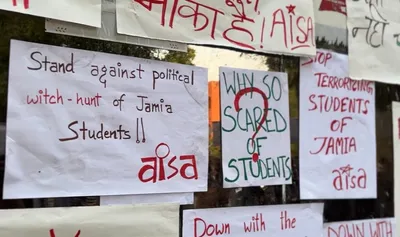 मौका है! AISA
Stand against political
witch-hunt of Jamia
Students!!
aisa
WHY SO
SCARED
OF
STUDENTS
?
STOP
TERRORIZING
STUDENTS
OF
JAMIA
aisa
Down with the
DOWN WITH